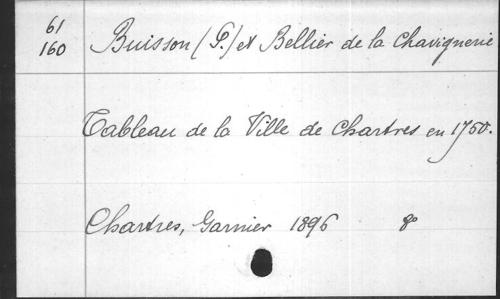 61
160
Buisson (P.) et Bellier de la Chavignerie
Tableau de la Ville de Chartres en 1750.
Chartres, Garnier 1896 8°